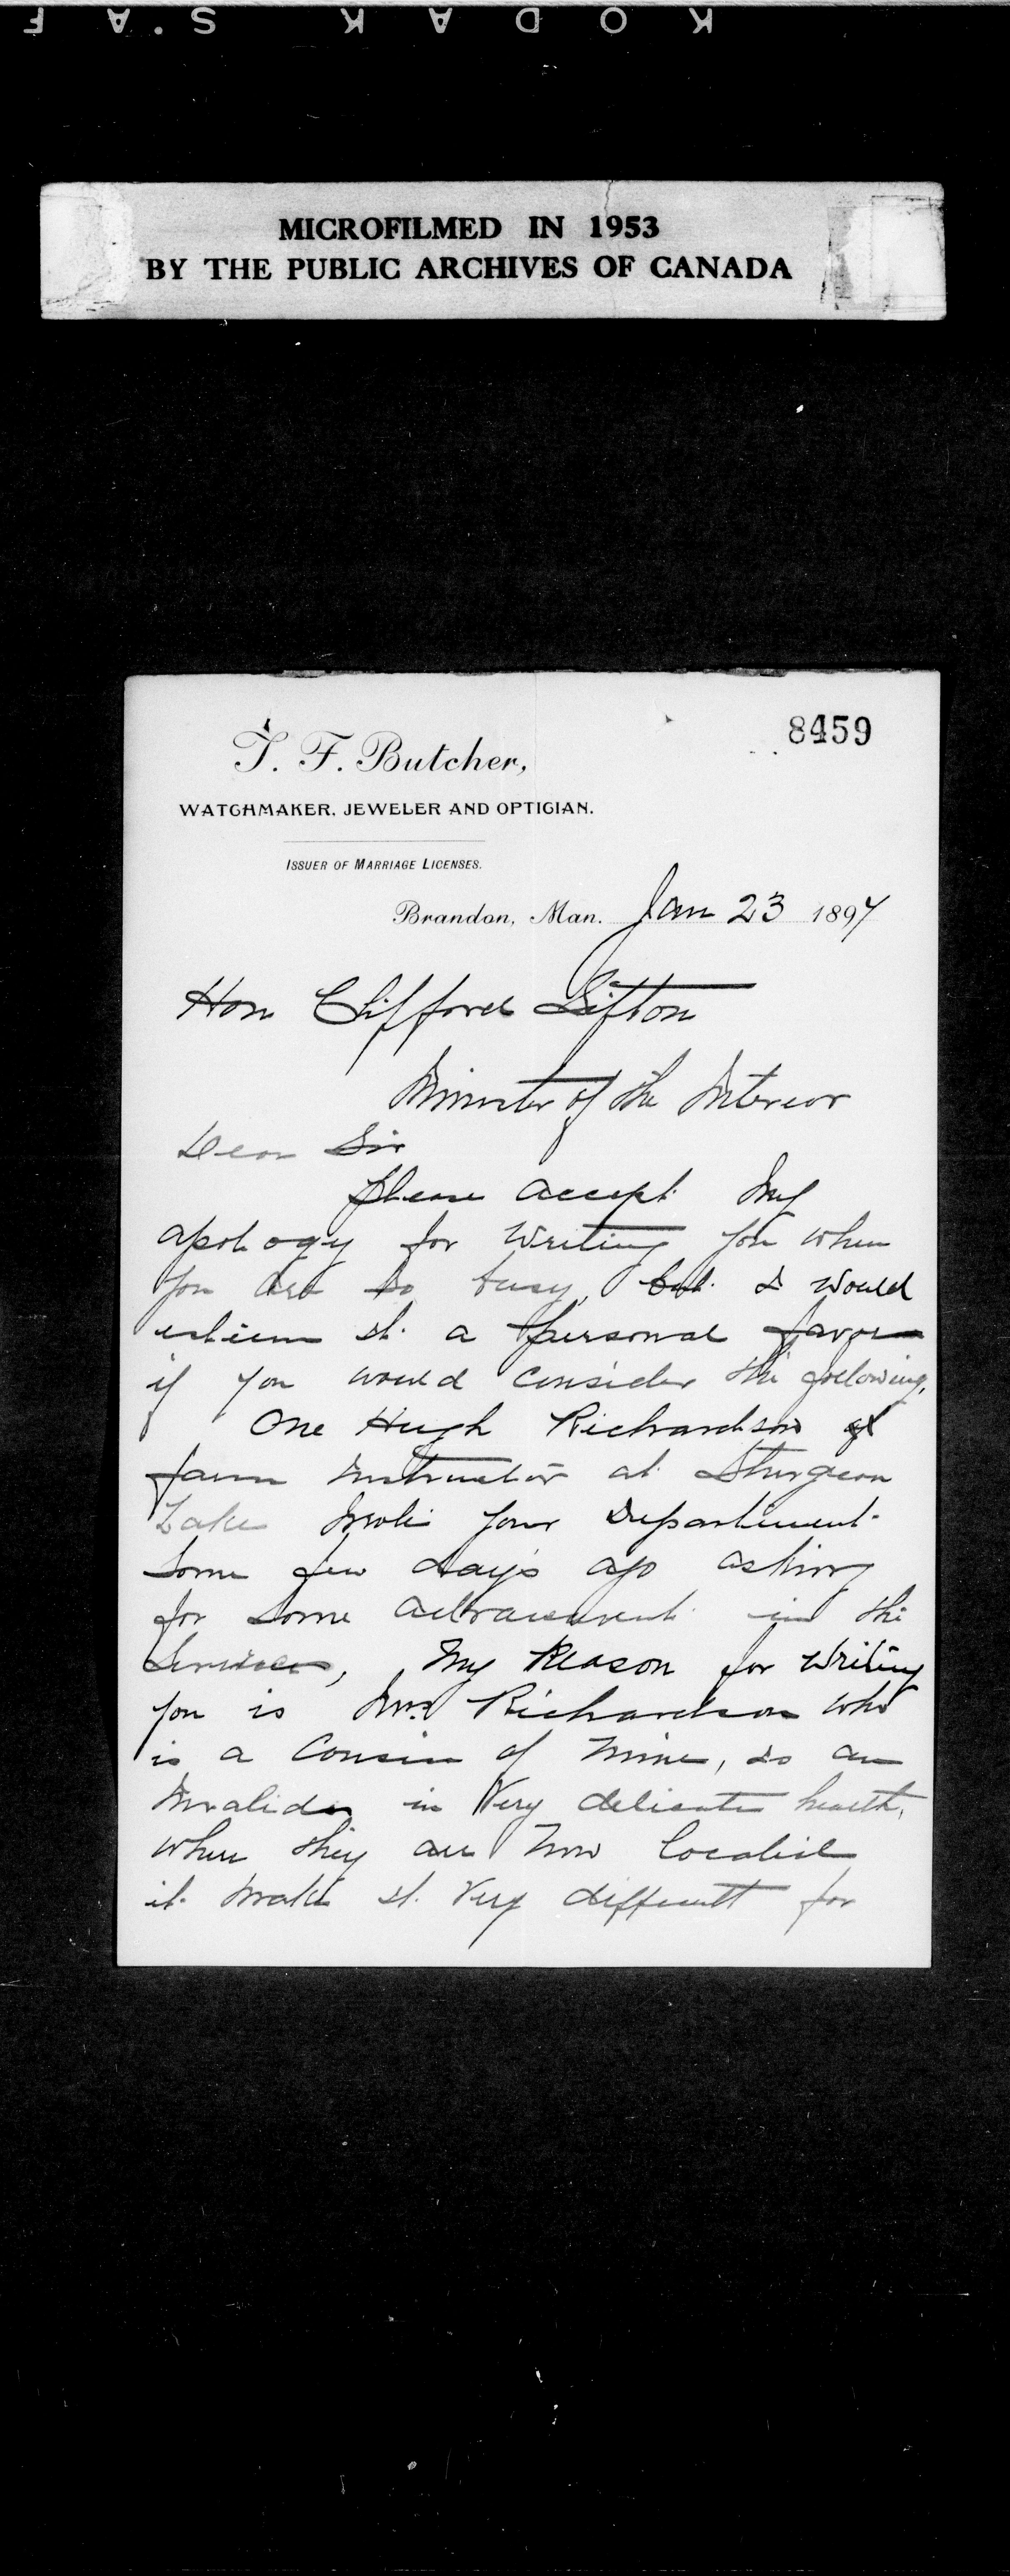 KODAK S.A.F
MICROFILMED IN 1953
BY THE PUBLIC ARCHIVES OF CANADA
8459
T. F. Butcher,
WATCHMAKER, JEWELER AND OPTICIAN.
ISSUER OF MARRIAGE LICENSES.
Brandon, Man. Jan 23 1897
Hon Clifford Sifton
Minister of the Interior
Dear Sir
Please accept my
apology for writing you when
you are so busy, but I would
esteem it a personal favor
if you would consider the following.
One Hugh Richardson
farm instructor at Sturgeon
Lake your Department
some few days ago asking
for some advancement in the
Service, My Reason for writing
you is Mrs Richardson who
is a Cousin of mine, is an
Invalid in Very delicate health,
where they are now located
it make it Very difficult for